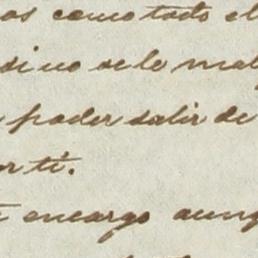 os como todo el
sino se le mal
poder salir de
or ti.
encargo aunq